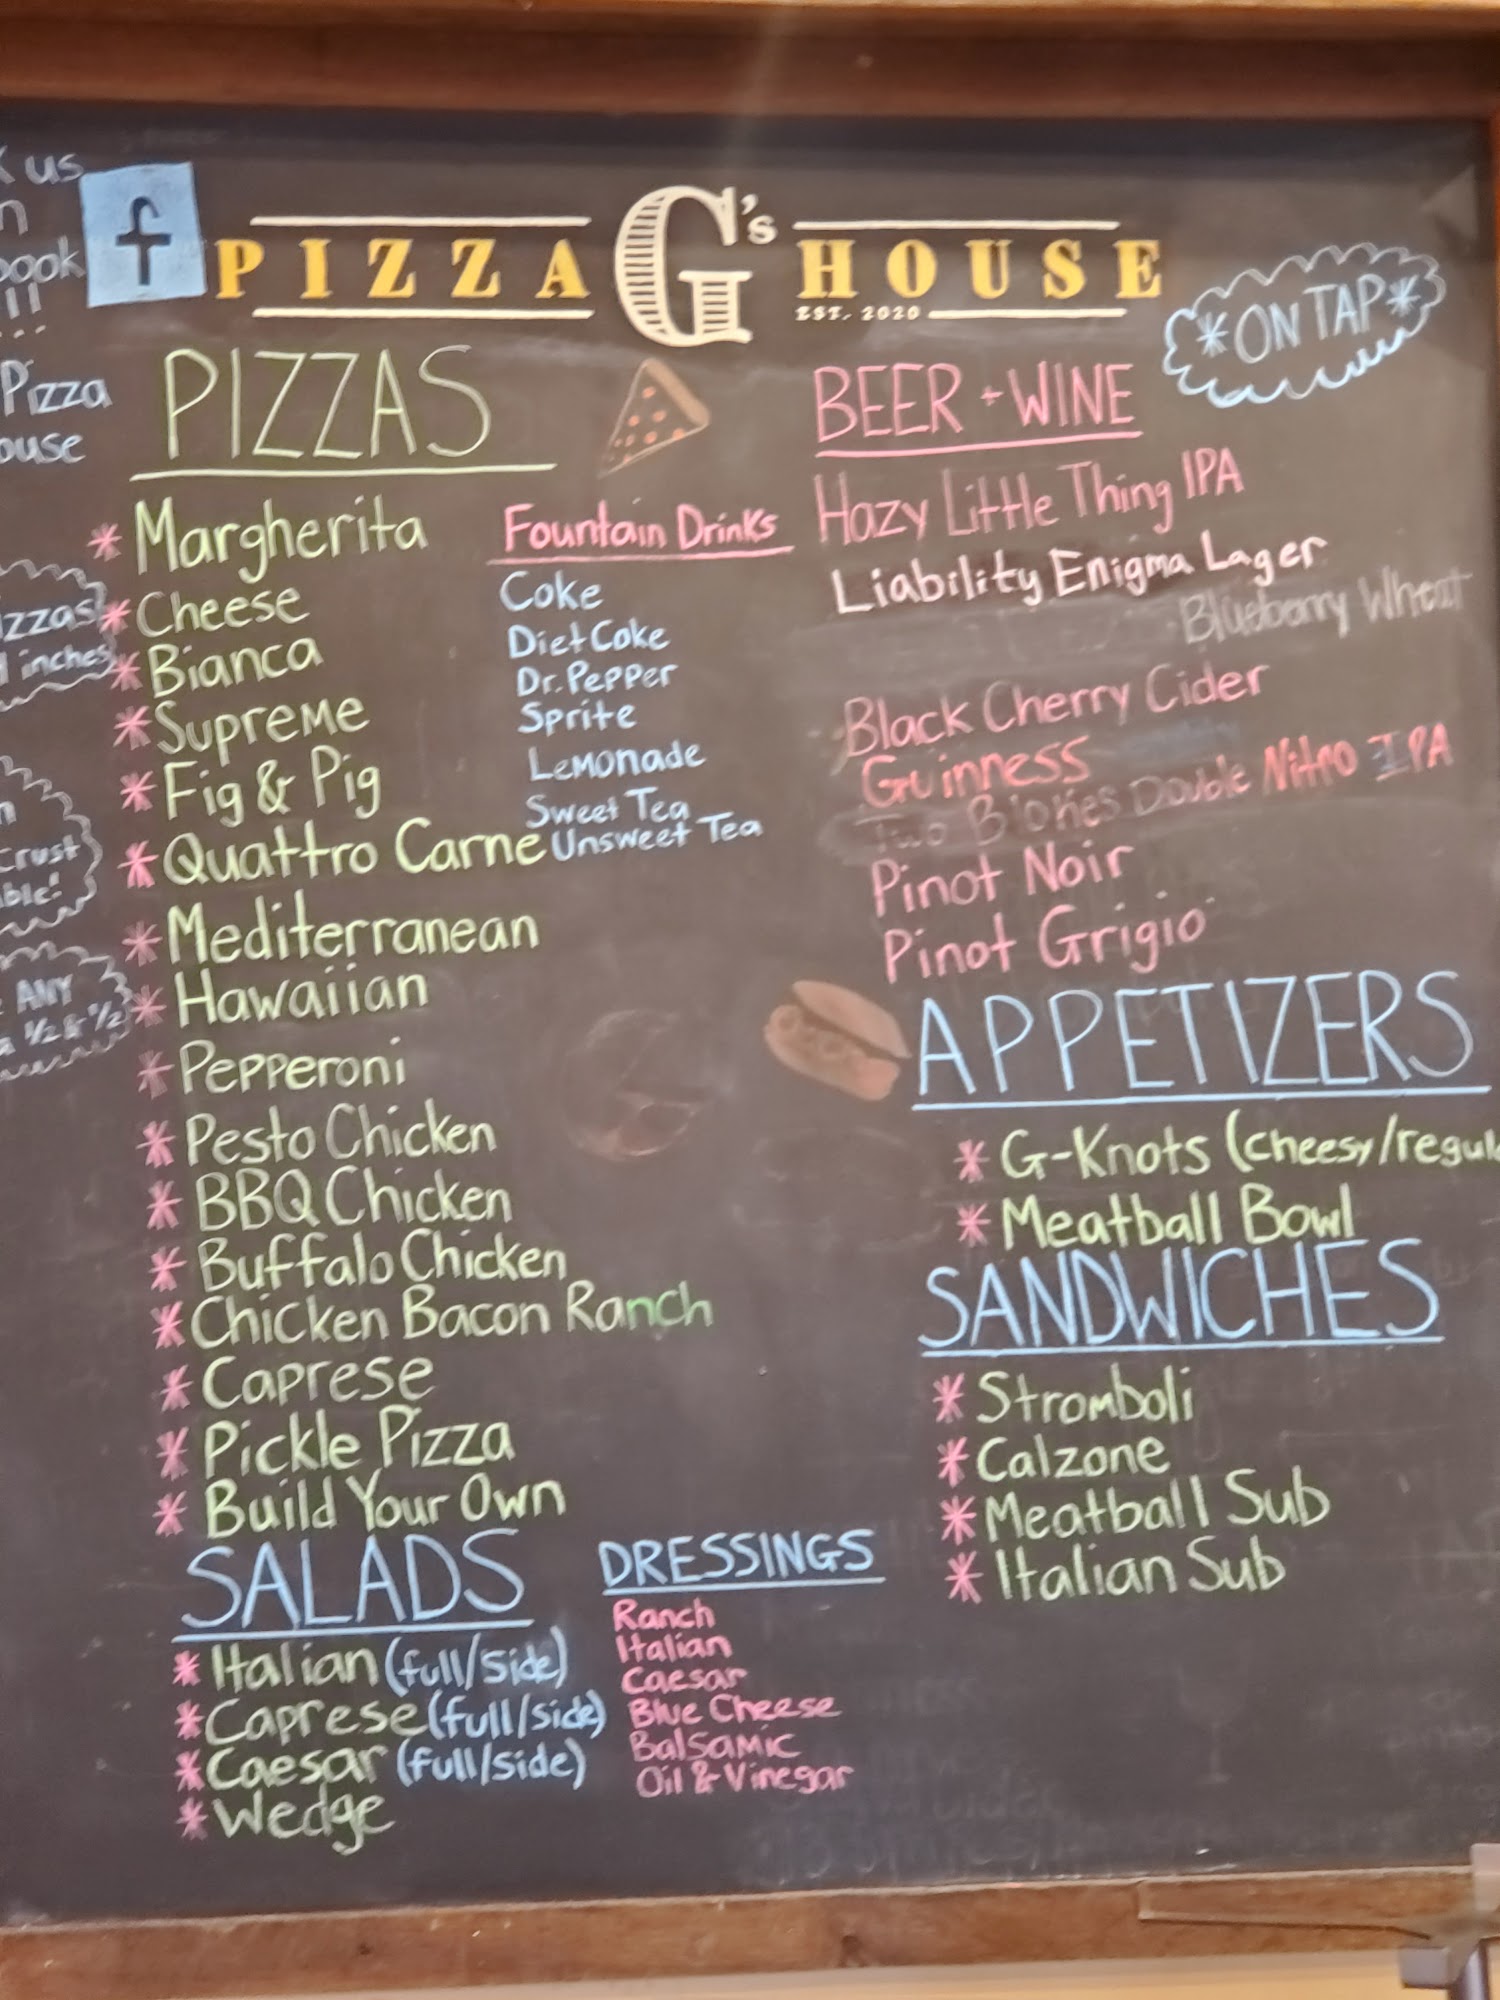 us
PIZZA G's HOUSE
EST. 2020
*ON TAP*
Pizza
PIZZAS
* Margherita
* Cheese
* Bianca
* Supreme
* Fig & Pig
* Quattro Carne
* Mediterranean
* Hawaiian
* Pepperoni
* Pesto Chicken
* BBQ Chicken
* Buffalo Chicken
* Chicken Bacon Ranch
* Caprese
* Pickle Pizza
* Build Your Own
inches
Crust
ANY
1/2 & 1/2
Fountain Drinks
Coke
Diet Coke
Dr. Pepper
Sprite
Lemonade
Sweet Tea
Unsweet Tea
BEER + WINE
Hazy Little Thing IPA
Liability Enigma Lager
Blueberry Wheat
Black Cherry Cider
Guinness
Two Blokes Double Nitro IPA
Pinot Noir
Pinot Grigio
APPETIZERS
* G-Knots (cheesy/regul
* Meatball Bowl
SANDWICHES
* Stromboli
* Calzone
* Meatball Sub
* Italian Sub
SALADS
* Italian (full/side)
* Caprese (full/side)
* Caesar (full/side)
* Wedge
DRESSINGS
Ranch
Italian
Caesar
Blue Cheese
Balsamic
Oil & Vinegar